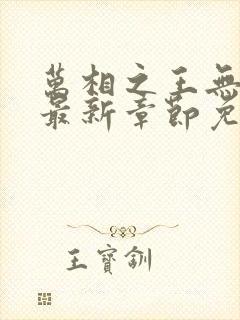 萬相之王無
最新章節免
王寶釧